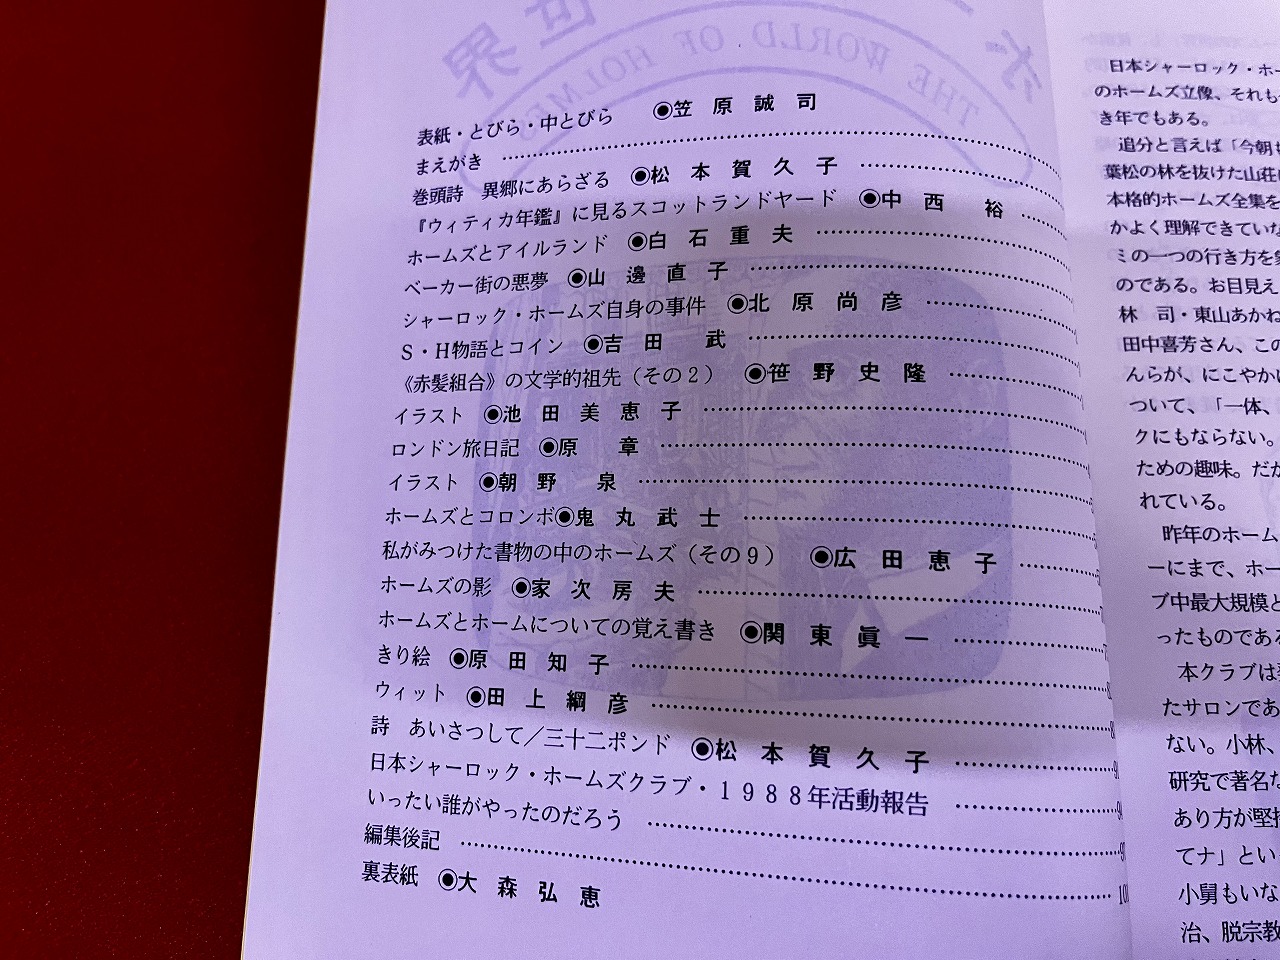 THE WORLD OF HOLMES
表紙・とびら・中とびら ◉笠原誠司
まえがき
巻頭詩 異郷にあらざる ◉松本賀久子
『ウィティカ年鑑』に見るスコットランドヤード ◉中西 裕
ホームズとアイルランド ◉白石重夫
ベーカー街の悪夢 ◉山邊直子
シャーロック・ホームズ自身の事件 ◉北原尚彦
S・H物語とコイン ◉吉田 武
《赤髪組合》の文学的祖先（その2） ◉笹野史隆
イラスト ◉池田美恵子
ロンドン旅日記 ◉原 章
イラスト ◉朝野 泉
ホームズとコロンボ◉鬼丸武士
私がみつけた書物の中のホームズ（その9） ◉広田恵子
ホームズの影 ◉家次房夫
ホームズとホームについての覚え書き ◉関東眞一
きり絵 ◉原田知子
ウィット ◉田上綱彦
詩 あいさつして／三十二ポンド ◉松本賀久子
日本シャーロック・ホームズクラブ・1988年活動報告
いったい誰がやったのだろう
編集後記
裏表紙 ◉大森弘恵
日本シャーロック・ホー
のホームズ立像、それも
き年でもある。
追分と言えば「今朝も
葉松の林を抜けた山荘
本格的ホームズ全集を
かよく理解できていな
ミの一つの行き方を
のである。お目見え
林 司・東山あかね
田中喜芳さん、この
んらが、にこやかに
ついて、「一体、
クにもならない。
ための趣味。だか
れている。
昨年のホーム
ーにまで、ホー
ブ中最大規模と
ったものである
本クラブは
たサロンであ
ない。小林、
研究で著名な
あり方が堅持
てナ」とい
小舅もいな
治、脱宗教